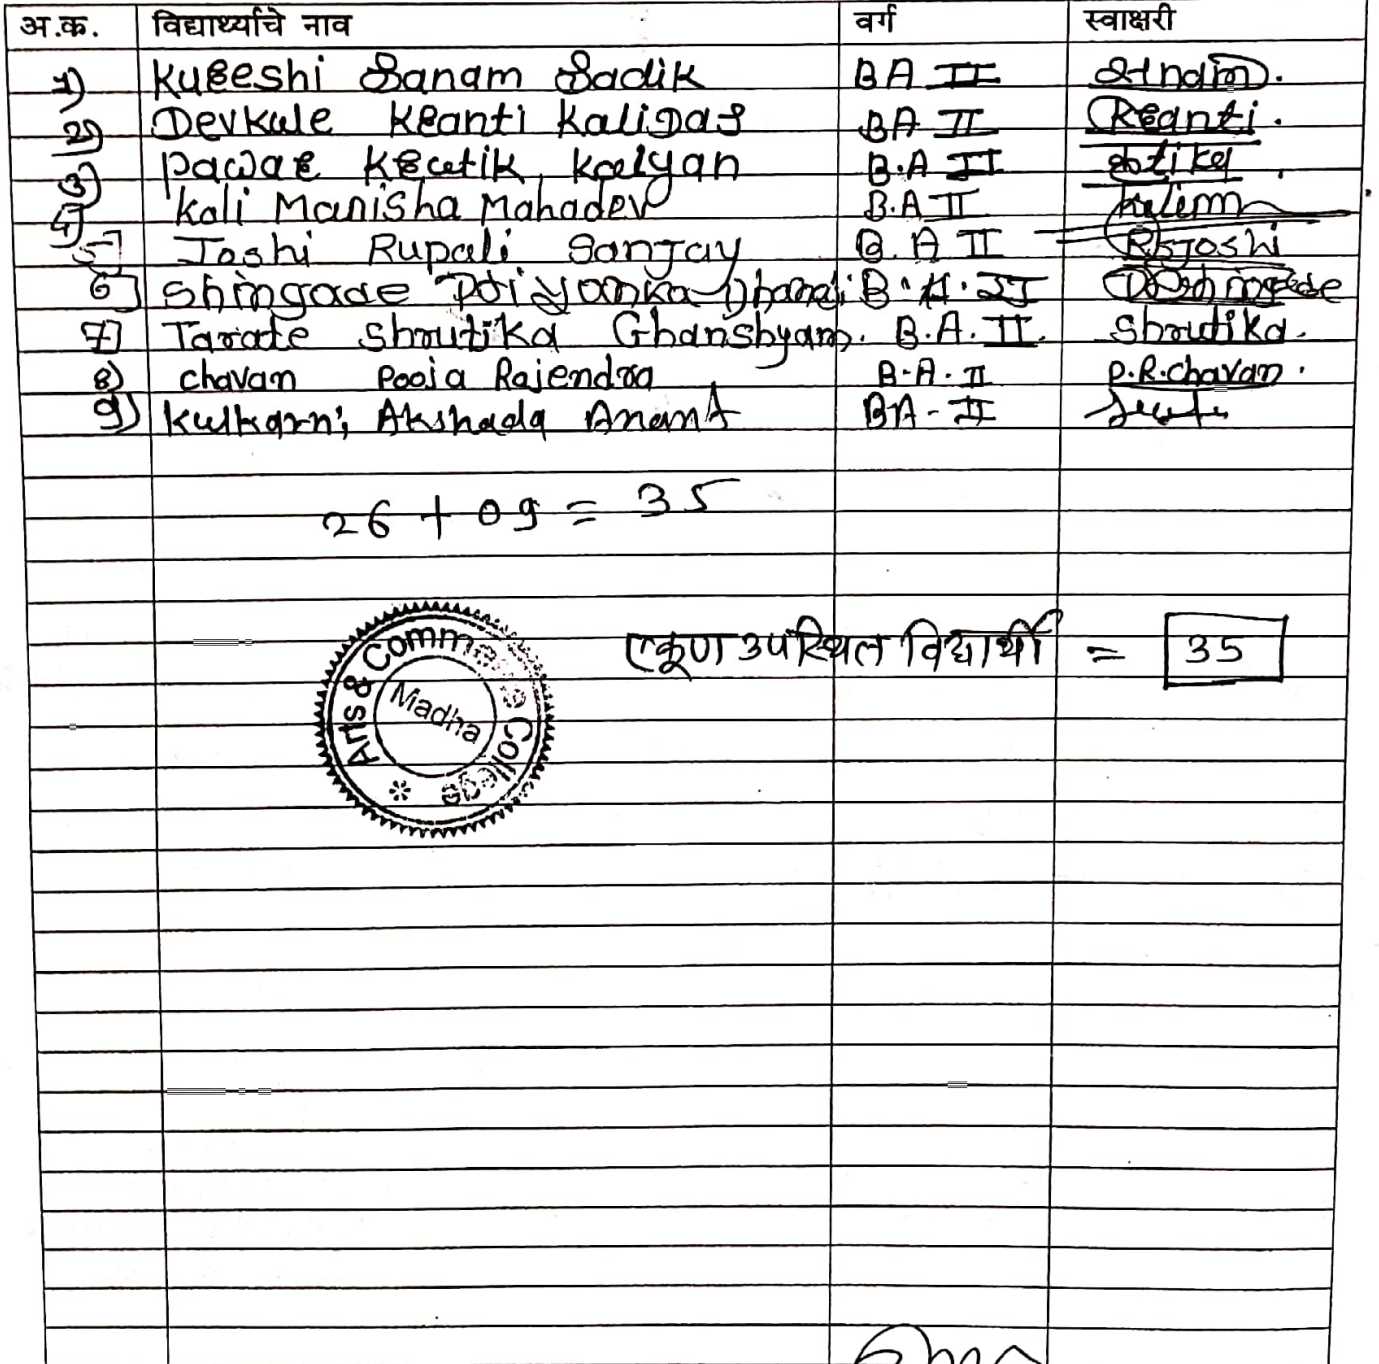 अ.क. विद्यार्थ्याचे नाव वर्ग स्वाक्षरी
1) Kureshi Sanam Sadik BA II Sanam.
2) Devkule Kranti Kalidas BA II Kranti.
3) Pawar Kalyan B.A II
4] Koli Manisha Mahadev B.A II
5] Joshi Rupali Sanjay B.A II RsJoshi
6] Shingade Priyanka Dhanaji B.A.II
7] Tarate Shrutika Ghanshyam. B.A.II. Shrutika.
8) chavan Pooja Rajendra B.A.II P.R.chavan.
9) Kulkarni Akshada Anant BA-II
26 + 09 = 35
एकूण उपस्थित विद्यार्थी = 35
Arts & Commerce College
Madha